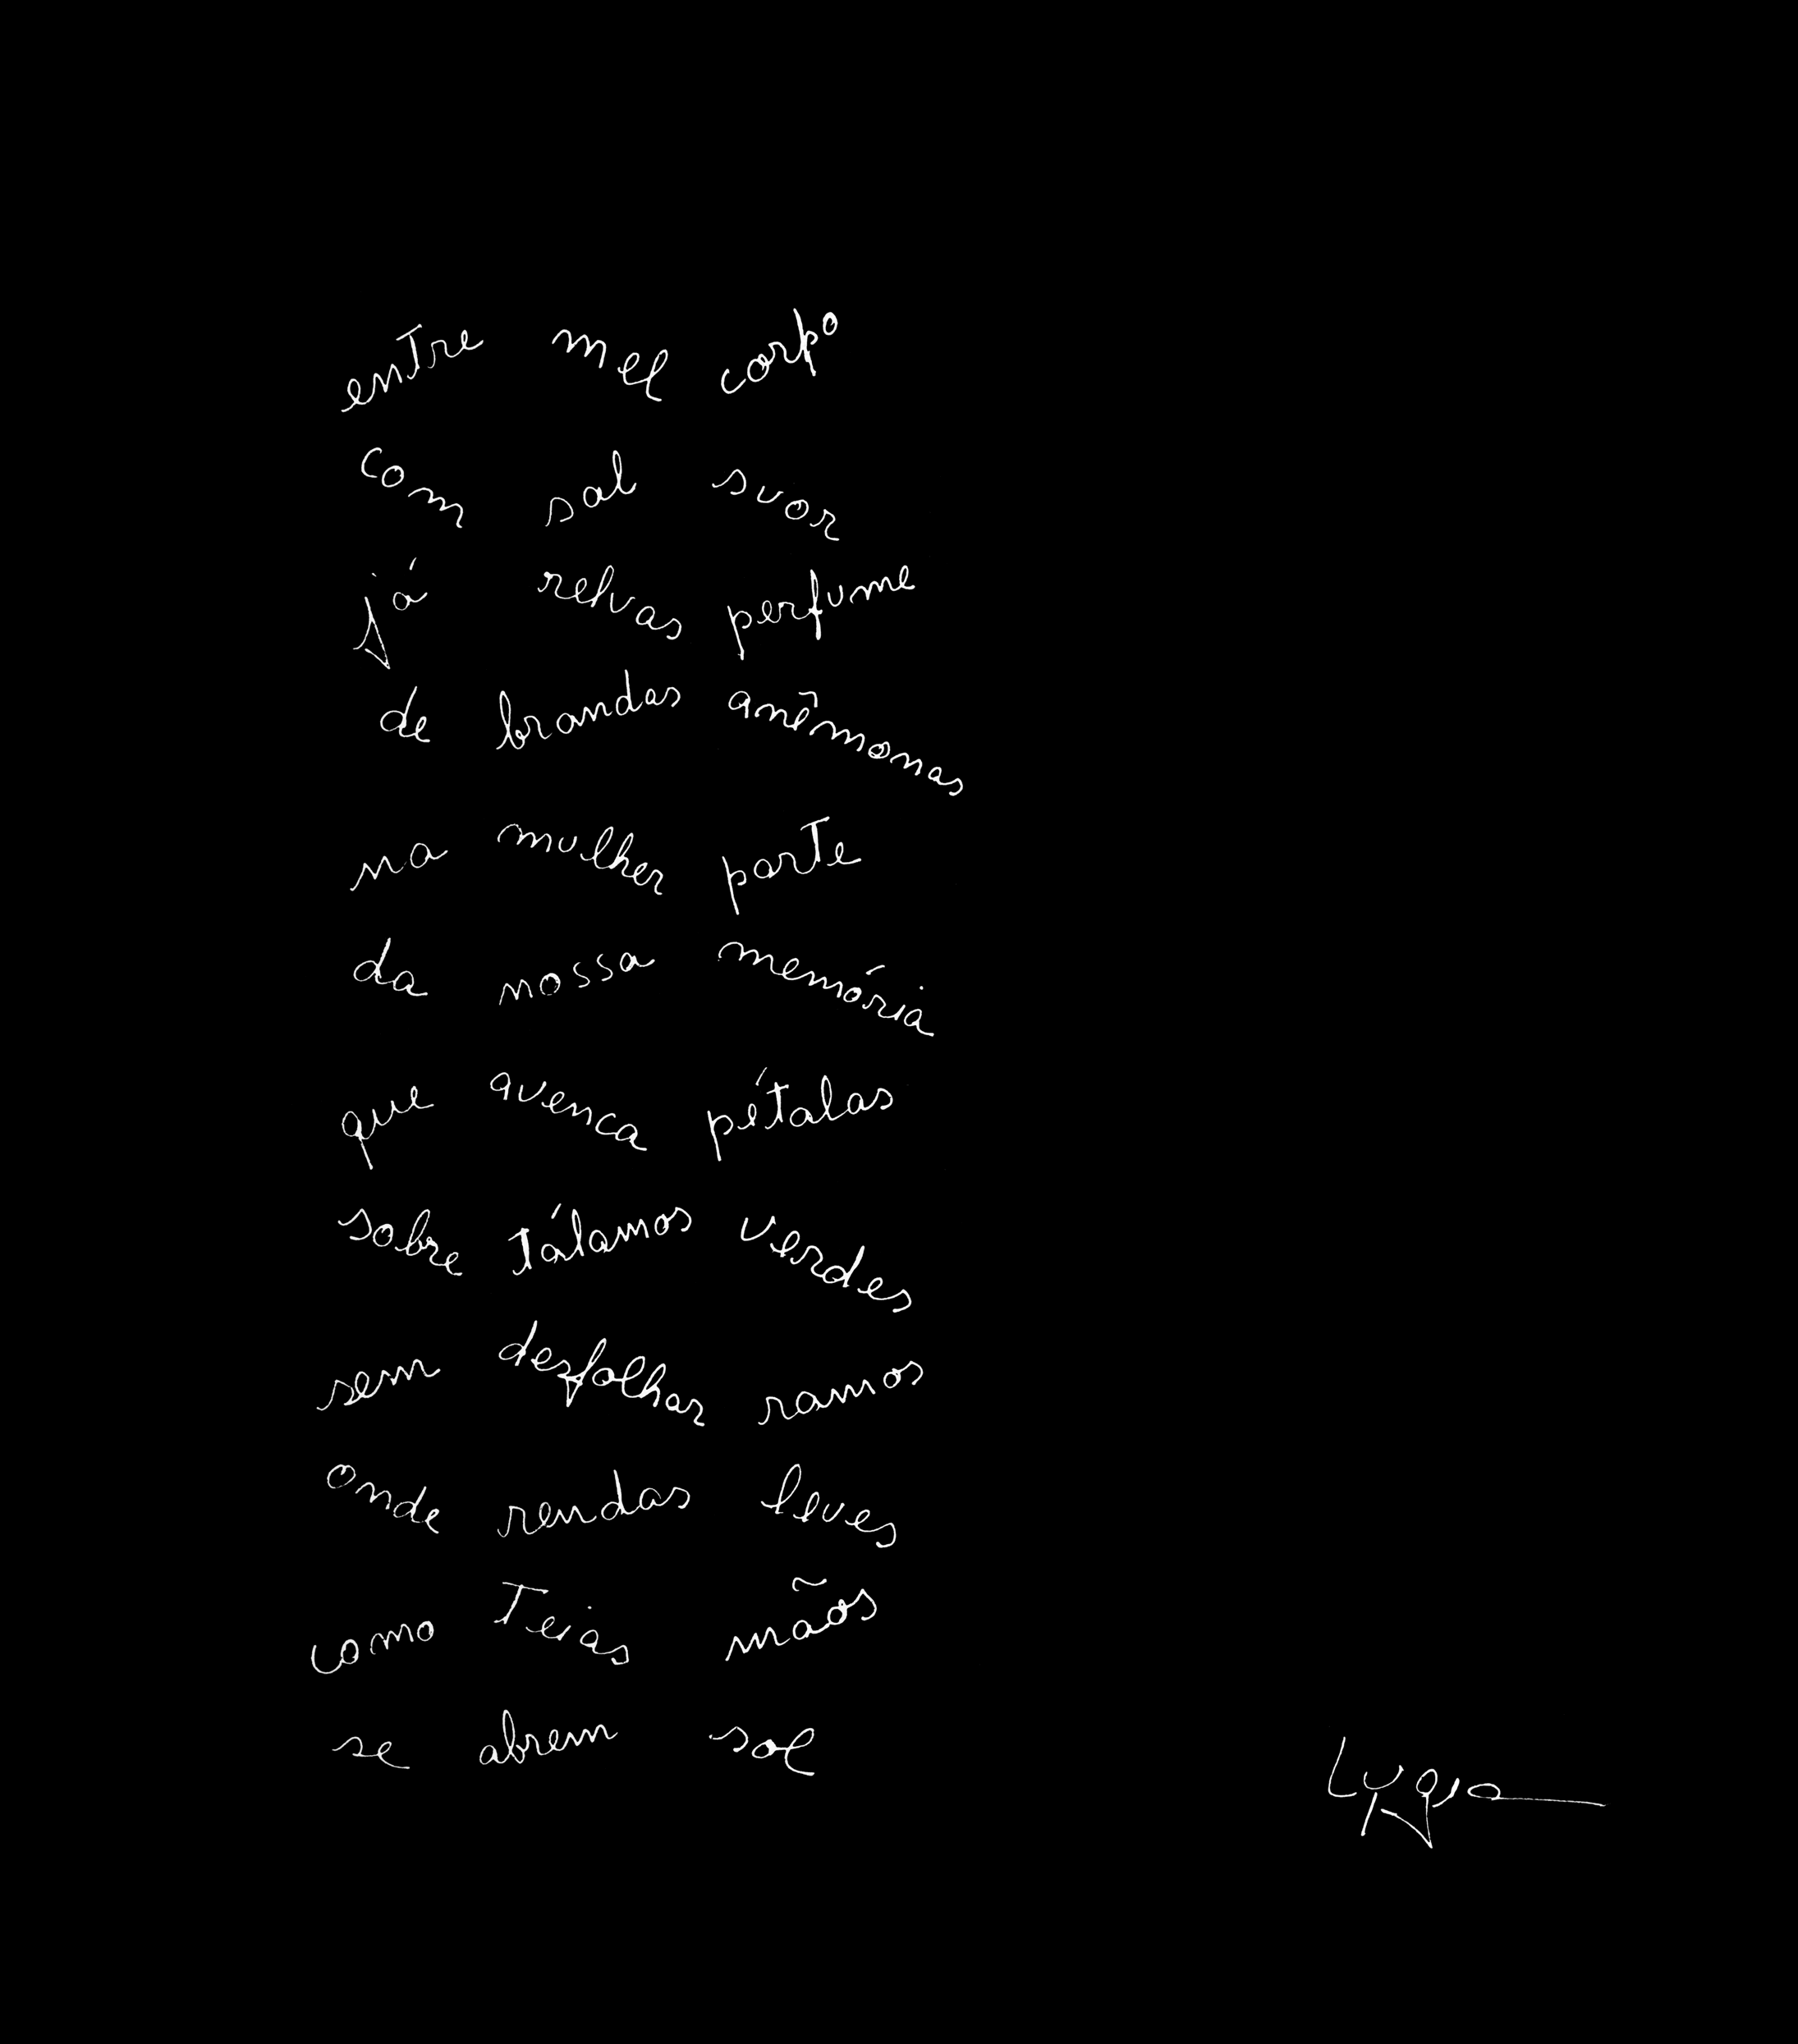 entre mel corpo
com sal suor
já relvas perfume
de brandas anêmonas
na mulher parte
da nossa memória
que avenca pétalas
sobre tálamos verdes
sem desfolhar ramos
onde rendas leves
como teias mãos
se abrem sol
Lygia